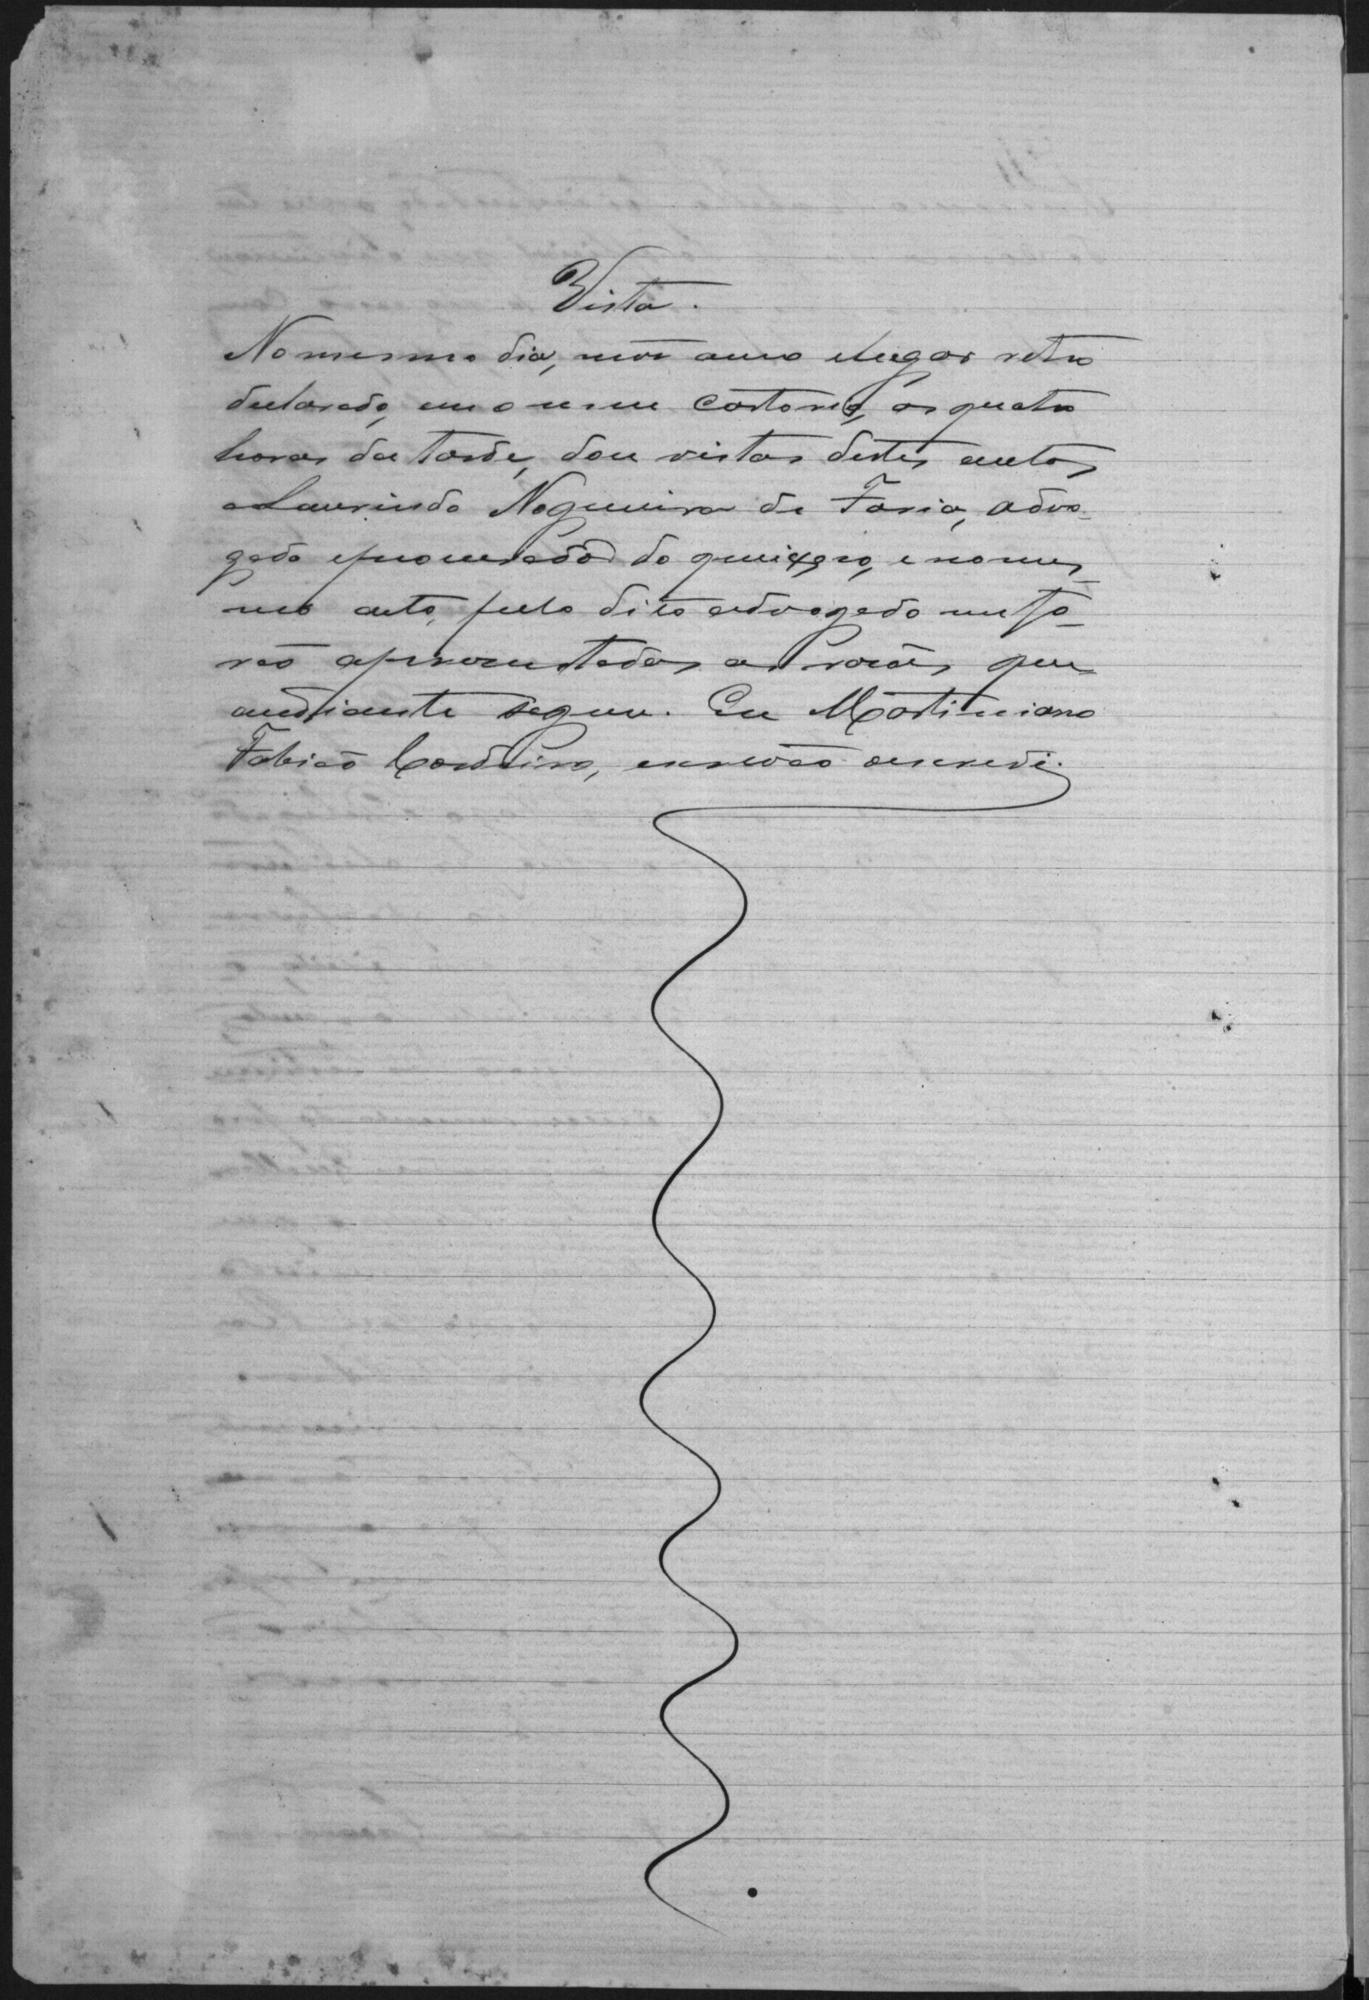 Vista.
No mesmo dia, mês anno e lugar retro
declarado, em o meu cartorio, as quatro
horas da tarde, dou vistas destes autos
a Laurindo Nogueira de Faria, advo-
gado e procurador do queixoso, e no mes-
mo acto, pelo dito advogado me fo-
rão apresentadas as rasões, que
adiante segue. Eu Martiniano
Fabião Cordeiro, escrivão o escrevi.